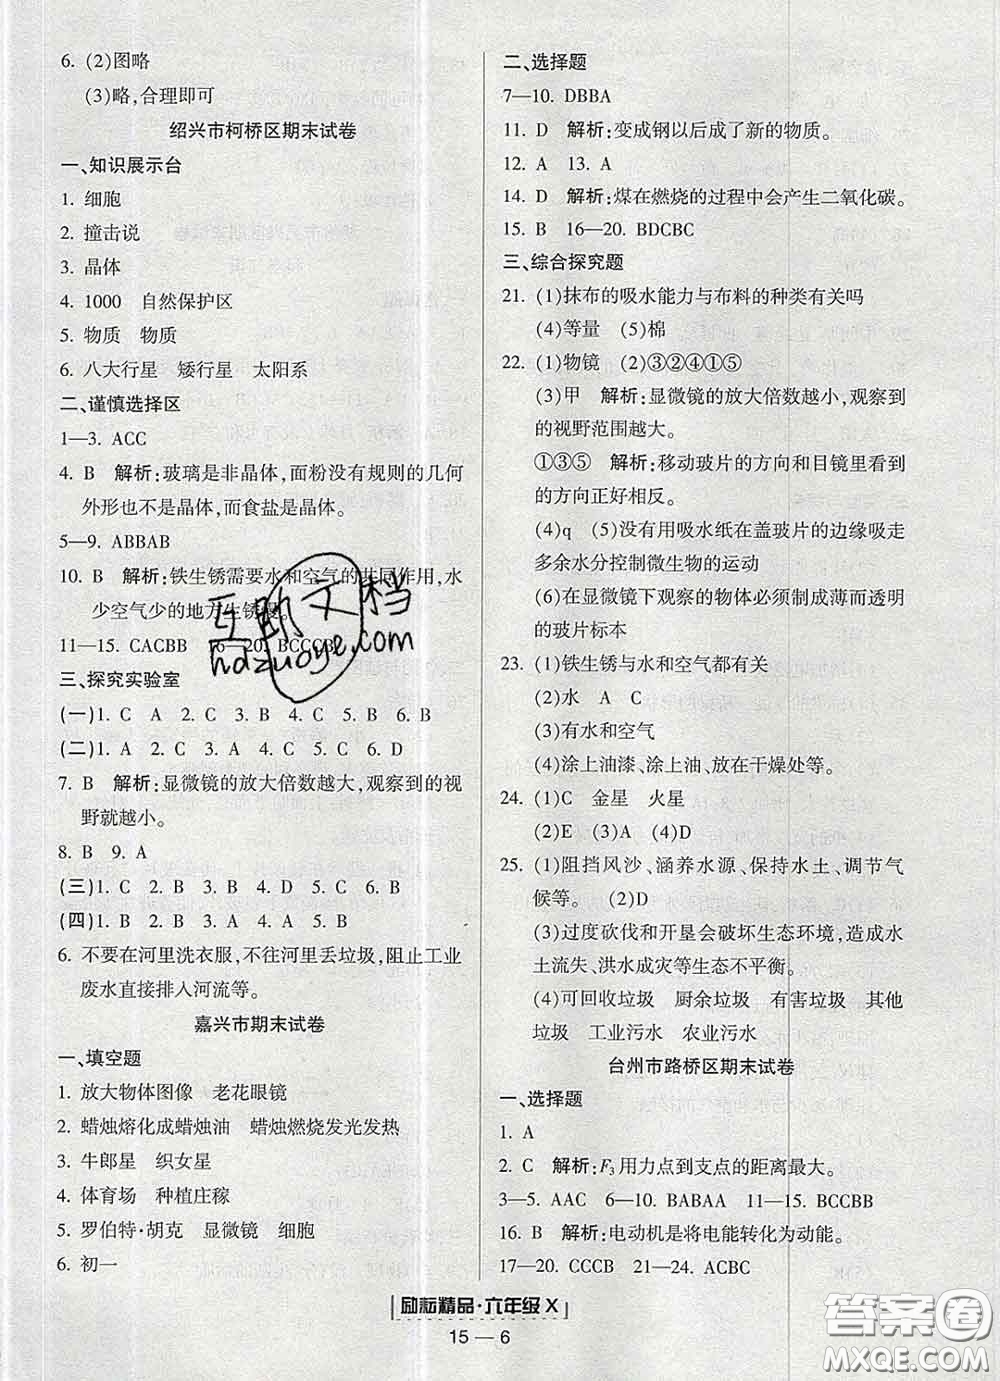 6. (2)图略
(3)略,合理即可
绍兴市柯桥区期末试卷
一、知识展示台
1. 细胞
2. 撞击说
3. 晶体
4. 1000 自然保护区
5. 物质 物质
6. 八大行星 矮行星 太阳系
二、谨慎选择区
1—3. ACC
4. B 解析:玻璃是非晶体,面粉没有规则的几何
外形也不是晶体,而食盐是晶体。
5—9. ABBAB
10. B 解析:铁生锈需要水和空气的共同作用,水
少空气少的地方生锈慢。
11—15. CACBB 16—20. BCCCB
三、探究实验室
(一)1. C A 2. C 3. B 4. C 5. B 6. B
(二)1. A 2. C 3. A 4. C 5. C 6. B
7. B 解析:显微镜的放大倍数越大,观察到的视
野就越小。
8. B 9. A
(三)1. C 2. B 3. B 4. A 5. B
(四)1. B 2. B 3. A 4. A 5. B
6. 不要在河里洗衣服,不往河里丢垃圾,阻止工业
废水直接排入河流等。
嘉兴市期末试卷
一、填空题
1. 放大物体图像 老花眼镜
2. 蜡烛熔化成蜡烛油 蜡烛燃烧发光发热
3. 牛郎星 织女星
4. 体育场 种植庄稼
5. 罗伯特·胡克 显微镜 细胞
6. 初一
二、选择题
7—10. DBBA
11. D 解析:变成钢以后成了新的物质。
12. A 13. A
14. D 解析:煤在燃烧的过程中会产生二氧化碳。
15. B 16—20. BDCBC
三、综合探究题
21. (1)抹布的吸水能力与布料的种类有关吗
(4)等量 (5)棉
22. (1)物镜 (2)③②④①⑤
(3)甲 解析:显微镜的放大倍数越小,观察到
的视野范围越大。
①③⑤ 解析:移动玻片的方向和目镜里看到
的方向正好相反。
(4)q (5)没有用吸水纸在盖玻片的边缘吸走
多余水分控制微生物的运动
(6)在显微镜下观察的物体必须制成薄而透明
的玻片标本
23. (1)铁生锈与水和空气都有关
(2)水 A C
(3)有水和空气
(4)涂上油漆、涂上油、放在干燥处等。
24. (1)C 金星 火星
(2)E (3)A (4)D
25. (1)阻挡风沙、涵养水源、保持水土、调节气
候等。 (2)D
(3)过度砍伐和开垦会破坏生态环境,造成水
土流失、洪水成灾等生态不平衡。
(4)可回收垃圾 厨余垃圾 有害垃圾 其他
垃圾 工业污水 农业污水
台州市路桥区期末试卷
一、选择题
1. A
2. C 解析:F₃用力点到支点的距离最大。
3—5. AAC 6—10. BABAA 11—15. BCCBB
16. B 解析:电动机是将电能转化为动能。
17—20. CCCB 21—24. ACBC
励耘精品·六年级 X
15 — 6
互助文档
hdzuoye.com
答案圈
MXQE.COM